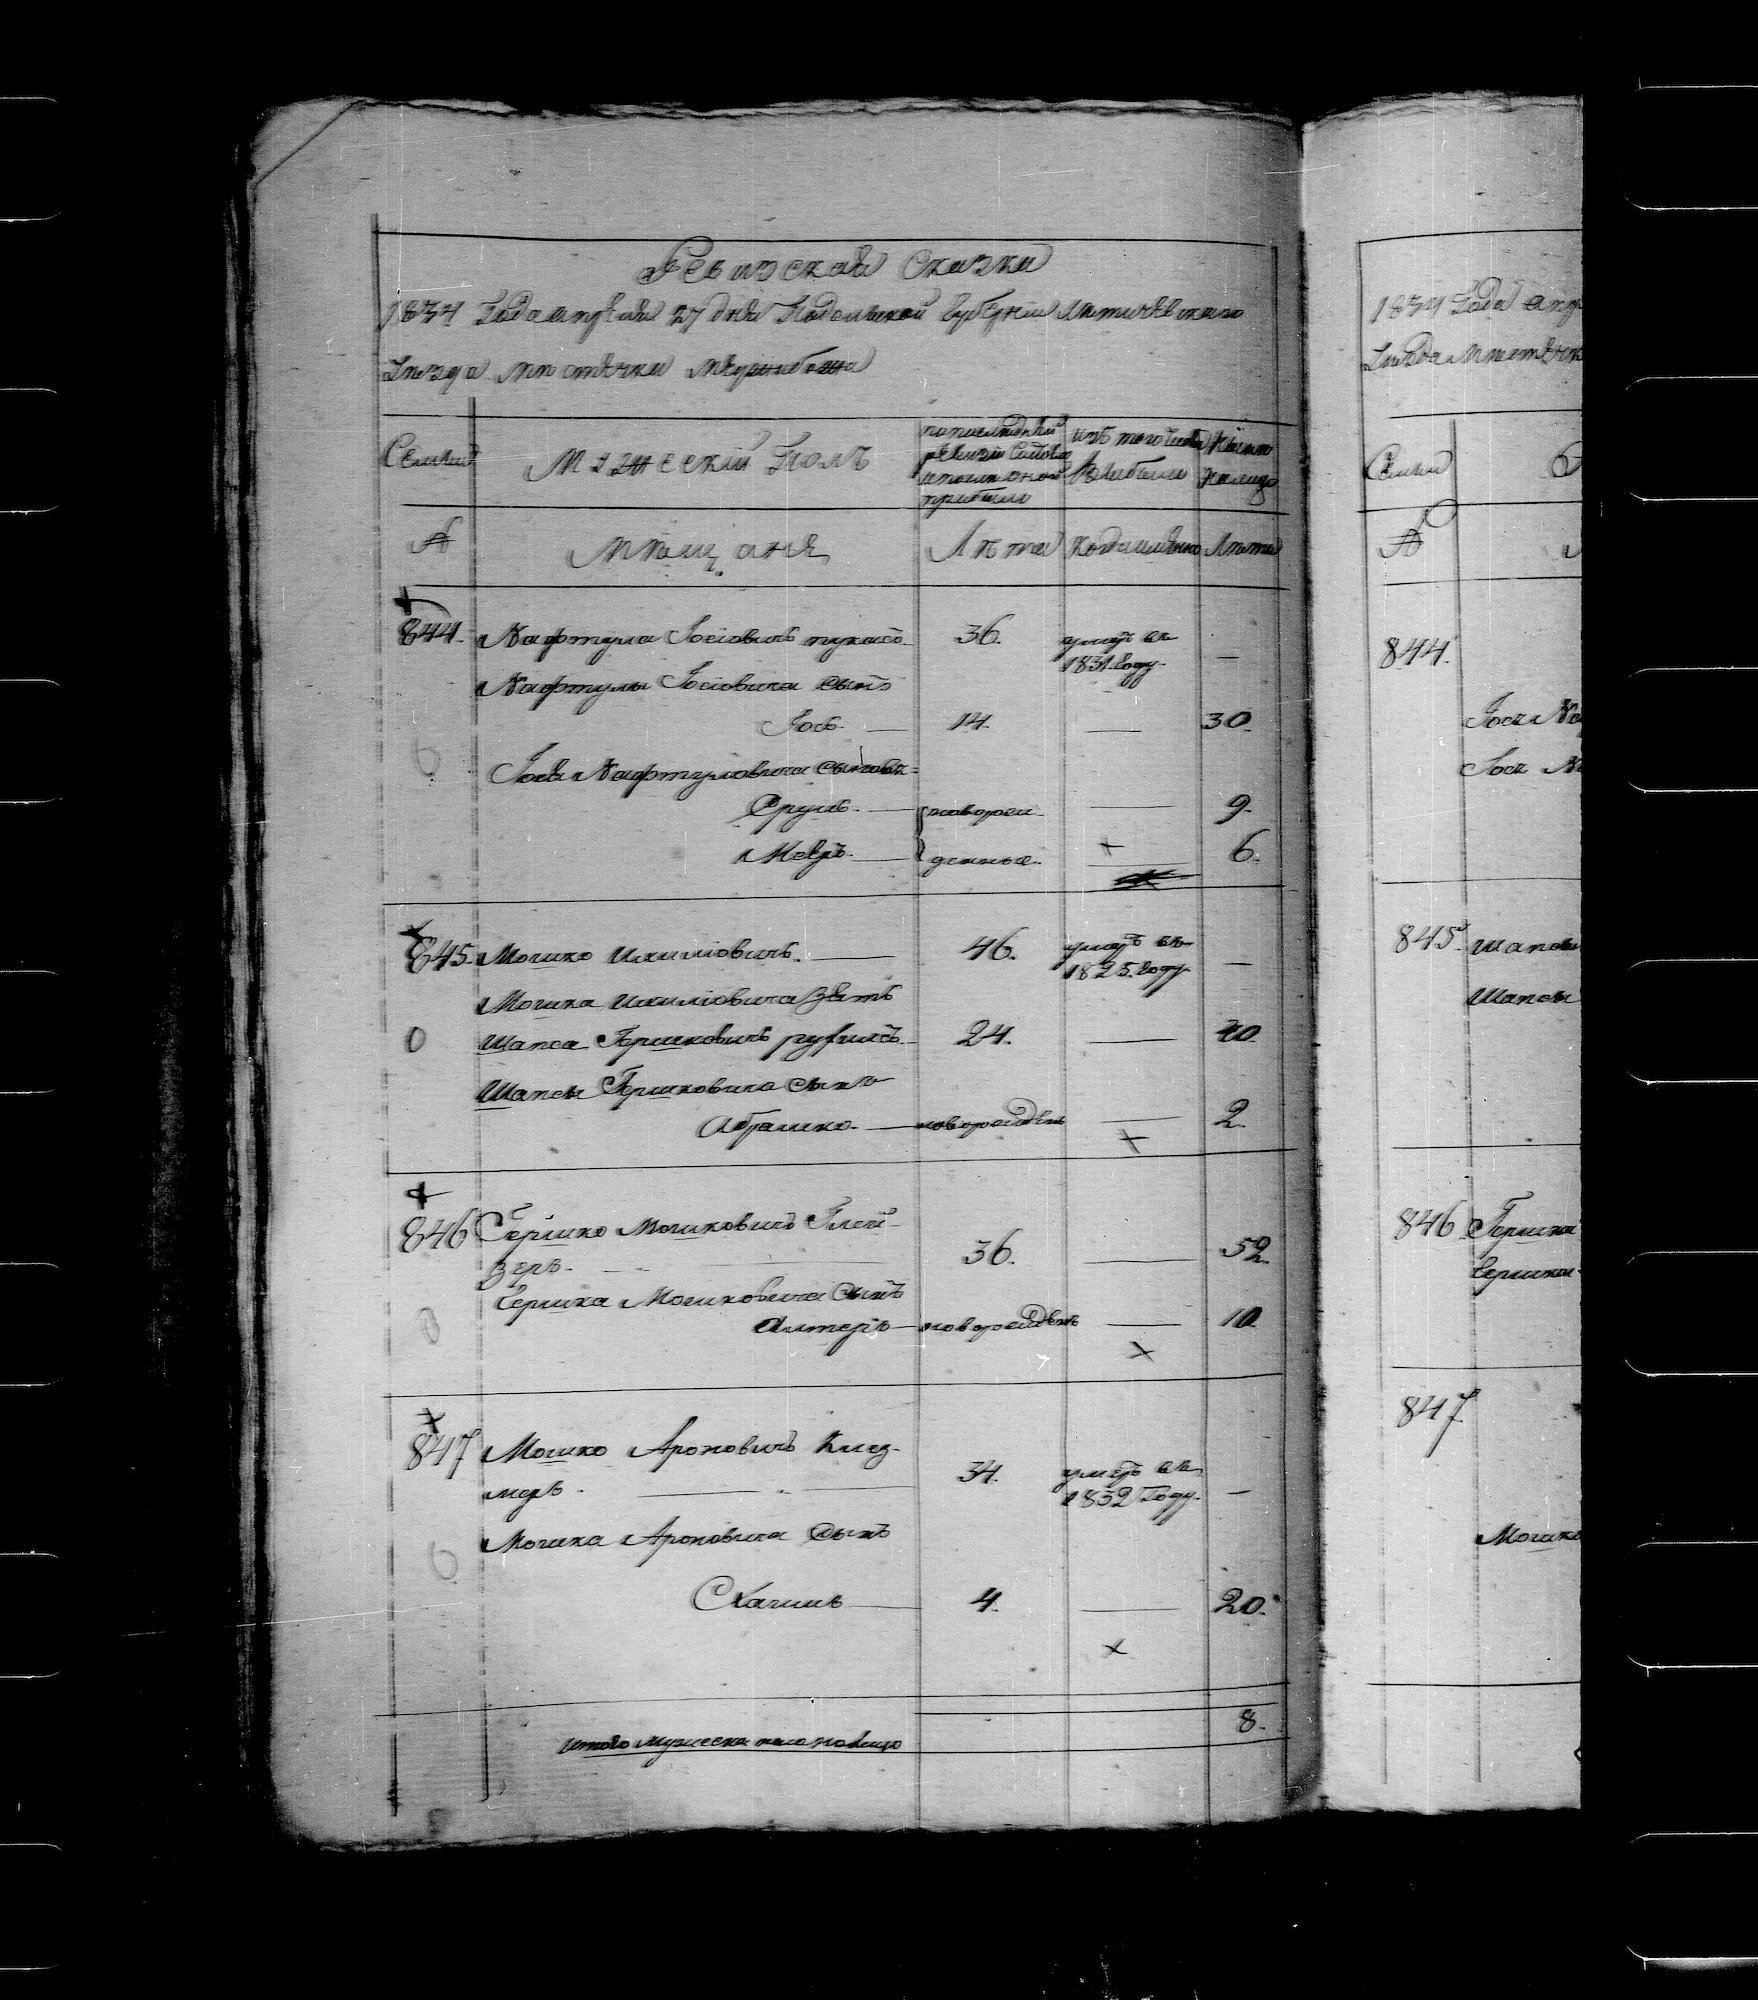 Ревизская Сказка
1834 Года апреля 27 дня Подольской Губерніи Летичевскаго
Уезда местечка Меджибожа
Семьи
Мужескій Полъ
по последней
ревизіи состояло
и после оной
прибыло
изъ того числа
выбыло
Ныне
на лицо
№
Мещане
Лета
Когда именно
Лета
844. Нафтула Іосіовичъ 36. умеръ въ
1831 Году —
Нафтулы Іосіовича сынъ
Іось — 14. — 30.
Іося Нафтуловича сыновья
Сруль — новорож 9.
Мееръ — денные 6.
845. Мошко Ихиліовичъ — 46. умеръ въ
1825. Году —
Мошка Ихиліовича Зять
Шапса Гершковичъ 24. — 40
Шапсы Гершковича сынъ
Абрамко — новорожденъ — 2.
846 Гершко Мошковичъ Глей-
зеръ. 36. — 52.
Гершка Мошковича Сынъ
Алтеръ — новорожденъ — 10.
847 Мошко Ароновичъ Клез-
меръ. 34. умеръ въ
1832 Году —
Мошка Ароновича сынъ
Хаимъ 4. — 20.
Итого мужеска пола на лицо 8.
1834 Года апр
Уезда местечк
Семьи
№
844.
Іося На
Іося На
845. Шапсы
Шапсы
846 Гершка
Гершка
847
Мошка